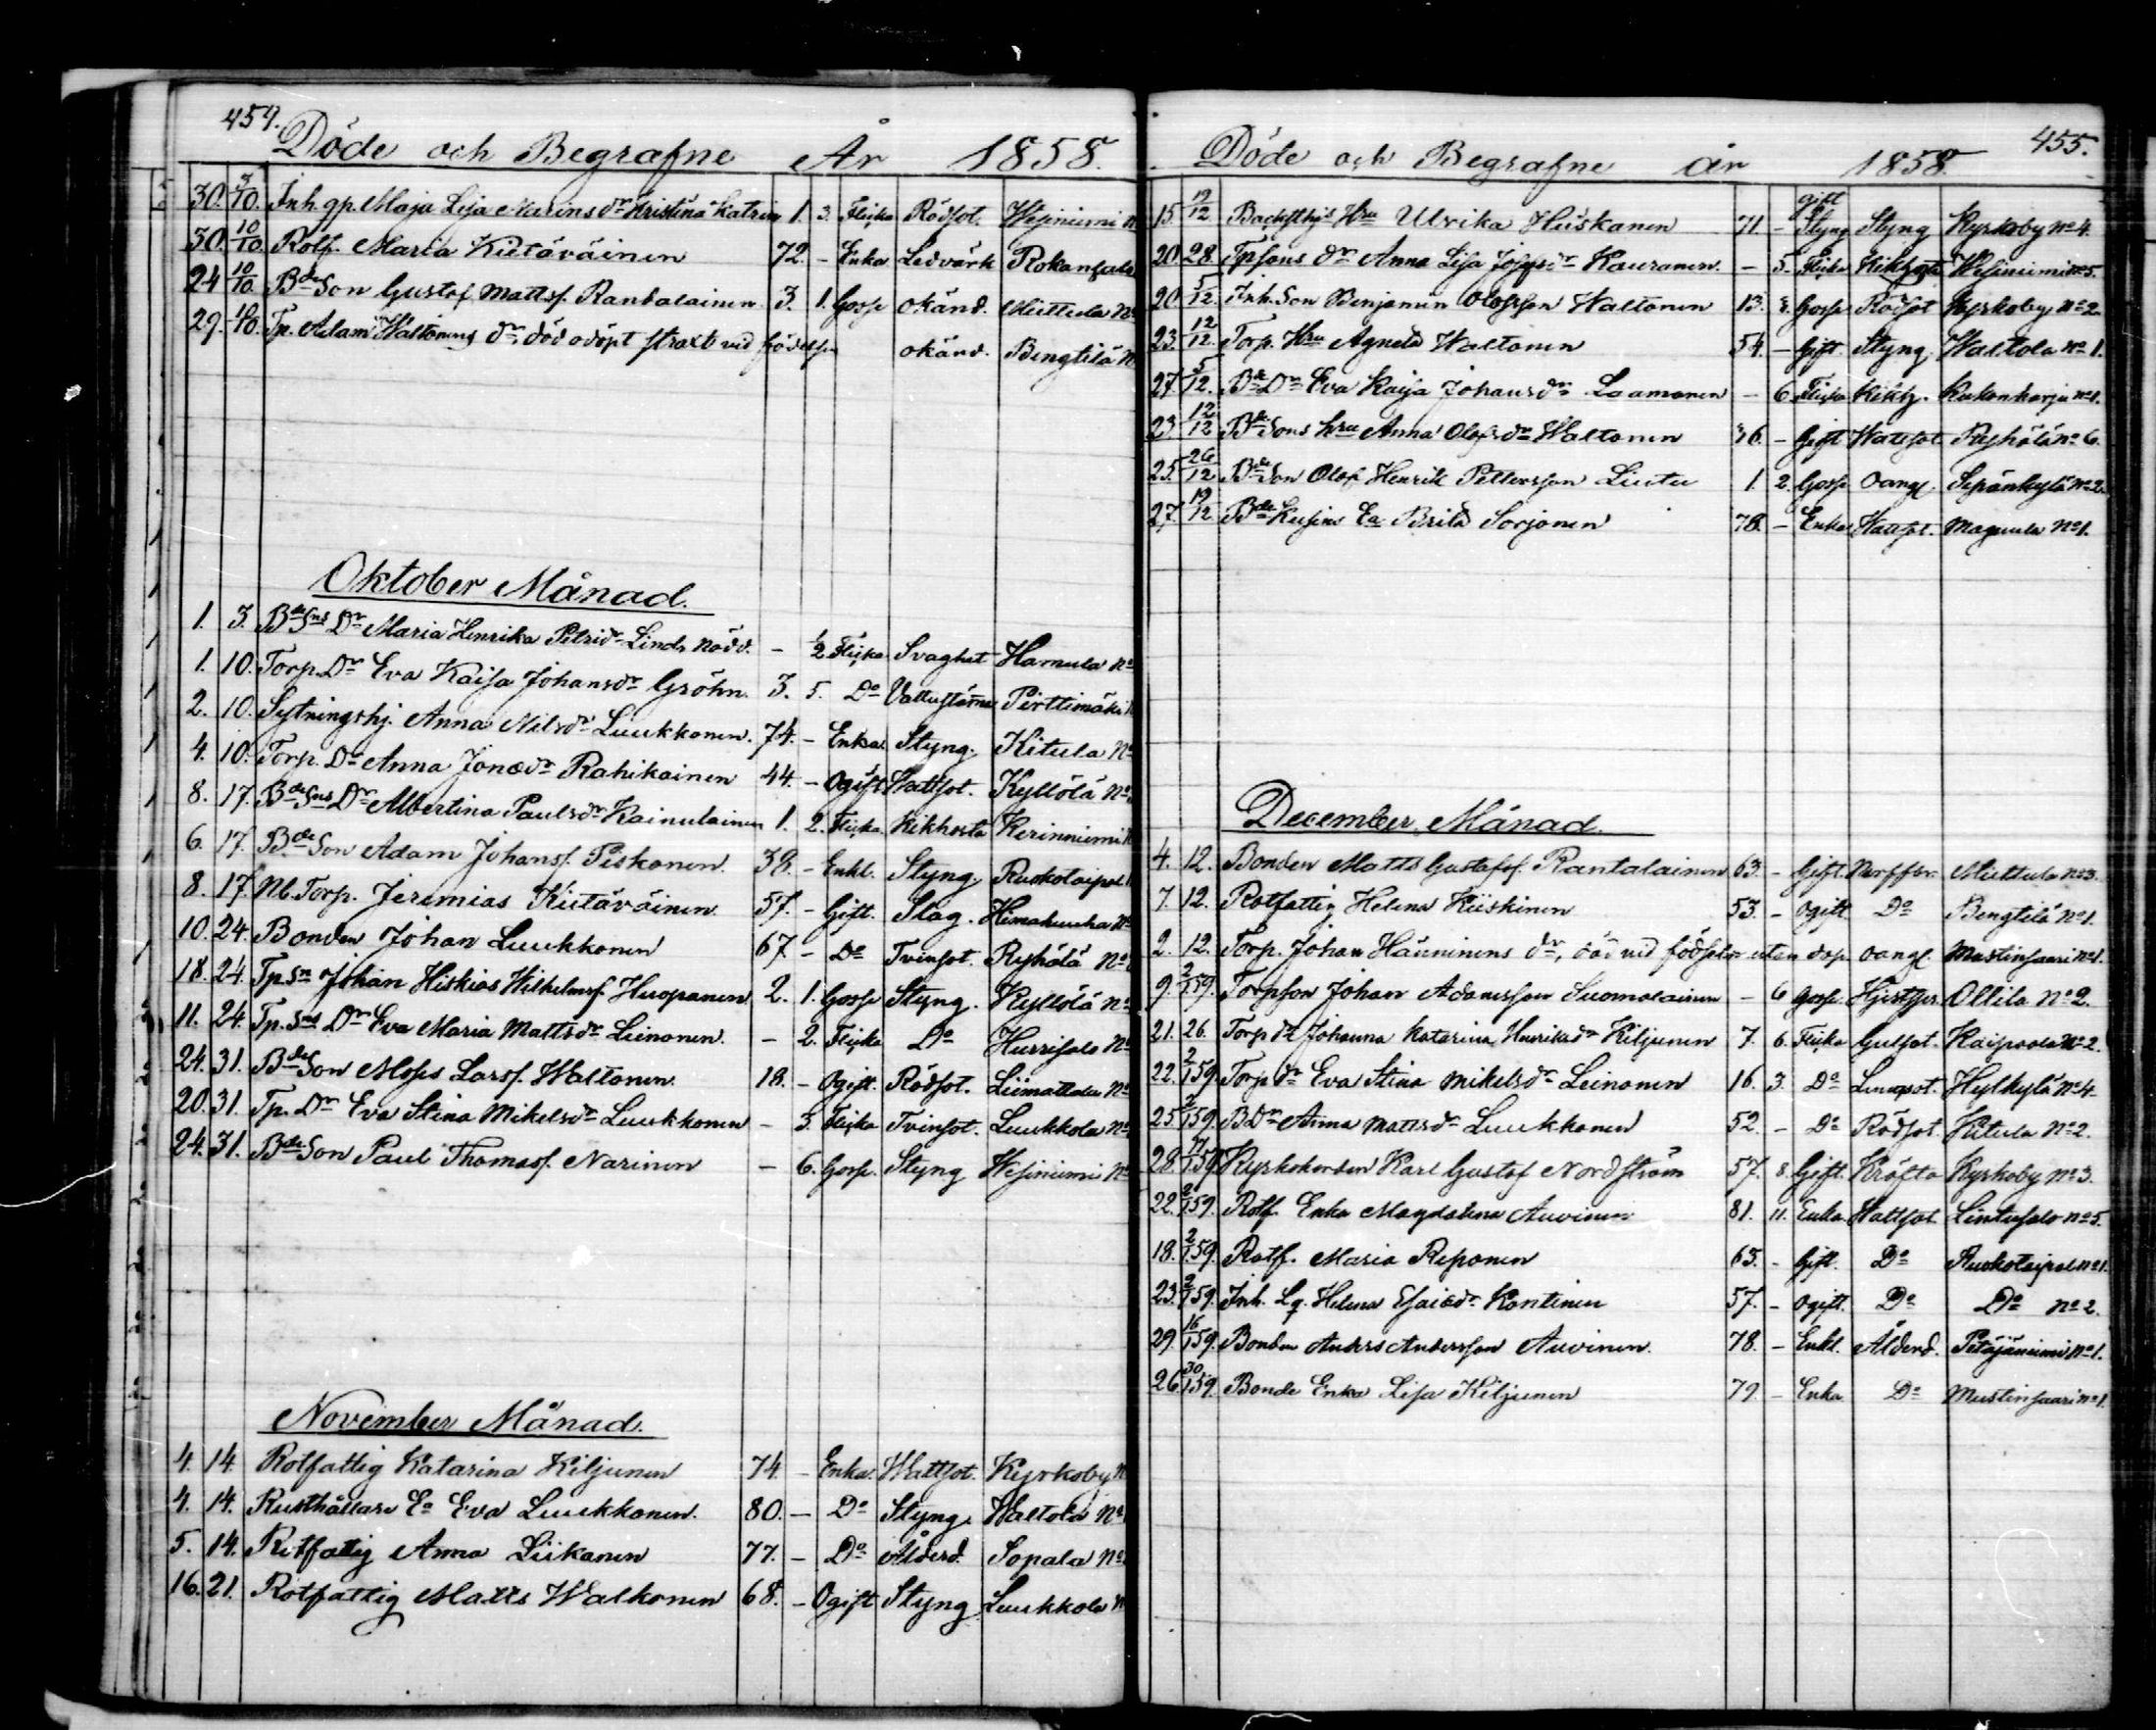 454.
Döde och Begrafne År 1858.
30. 3/10. Inh. gp. Maja Lisa Narins dr Kristina Katrin 1. 3. Flicka Rödsot. Wesiniemi N
30. 10/10 Rotf. Maria Kietäväinen 72. - Enka Ledvärk Rokansalo
24 10/10. Bde Son Gustaf Mattsf. Rantalainen 3. 1. Gosse okänd. Miettula No
29. 10/10. Tp. Adam Waltonens dr död odöpt straxt vid födelsen okänd. Bengtilä N
Oktober Månad.
1. 3. Bde Sns Dr Maria Henrika Petridr Linds nödd. - ½ Flicka Svaghet Hamula No
1. 10. Torp. Dr Eva Kaisa Johansdr Gröhn. 3. 5. Do Vattustäma Pirttimäki N
2. 10. Sytningshj. Anna Nilsdr Luukkonen. 74. - Enka Styng. Kitula No
4. 10. Torp. Dr Anna Jonædr Rahikainen 44. - Ogift Wattsot. Kyllölä No
8. 17. Bde Sns Dr Albertina Paulsdr Kainulainen 1. 2. Flicka Kikhosta Kerinniemi N
6. 17. Bde Son Adam Johansf. Piskonen. 38. - Enkl. Styng Ruokolaipal N
8. 17. Nb. Torp. Jeremias Kietäväinen. 57. - Gift. Slag. Himahuuha No
10. 24. Bonden Johan Luukkonen 67 - Do Tvinsot. Ryhälä No
18. 24. Tp. Sn Johan Hiskias Wilhelmsf. Huopanen 2. 1. Gosse Styng. Kyllölä No
11. 24. Tp. Sns Dr Eva Maria Mattsdr Leinonen. - 2. Flicka Do Hurrisalo No
24. 31. Bde Son Moses Larsf. Waltonen. 18. - Ogift. Rödsot. Liimattala No
20. 31. Tp. Dr Eva Stina Mikelsdr Luukkonen - 3. Flicka Tvinsot. Luukkola No
24. 31. Bde Son Paul Thomasf. Narinen - 6. Goss. Styng Wesiniemi No
November Månad.
4. 14. Rotfattig Katarina Kiljunen 74. - Enka. Wattsot. Kyrkoby N
4. 14. Rusthållare Ea Eva Luukkonen. 80. - Do Styng. Waltola No
5. 14. Rotfattig Anna Liikanen 77. - Do Ålderd. Sopala No
16. 21. Rotfattig Matts Walkonen 68. - Ogift Styng Luukkola N
455.
Döde och Begrafne år 1858.
gift
15 19/12 Backsthjs Hru Ulrika Huiskanen 71. - Styng Kyrkoby No 4.
20. 28. Tpsons dr Anna Lisa Josefsdr Kauranen. - 5. Flicka Kikhosta Wesiniemi No 5.
20. 5/12. Inh. Son Benjamin Olofsson Waltonen 13. 3. Gosse Rödsot Kyrkoby No 2.
23. 12/12 Torp. Hru Agneta Waltonen 54. - Gift. Styng. Waltola No 1.
27. 5/12. Bde Dr Eva Kaisa Johansdr Laamanen - 6. Flicka Kikh. Kukonharju No 1.
23. 12/12 Bde Sons hru Anna Olofsdr Waltonen 36. - Gift Wattsot Ryhälä No 6.
25. 26/12 Bde Son Olof Henrik Pettersson Liutu 1. 2. Gosse Oangf. Sepänkylä No 2.
27. 19/12 Bde Kusins Ea Brita Sorjonen 78. - Enka Wattsot. Maquula No 1.
December Månad.
4. 12. Bonden Matts Gustafsf. Rantalainen 63. - Gift. Nerffbr. Miettula No 3.
7. 12. Rotfattig Helena Kiiskinen 53. - Ogift Do Bengtilä No 1.
2. 12. Torp. Johan Hänninens dr, död vid födseln utan dop oangf. Mustinsaari No 1.
9. 2/1 59. Torpson Johan Adamsson Suomalainen - 6 Goss. Hjertspr. Ollila No 2.
21. 26. Torp dr Johanna Katarina Henriksdr Kiljunen 7. 6. Flicka Gulsot. Kaipaala No 2.
22. 2/1 59. Torp dr Eva Stina Mikelsdr Leinonen 16. 3. Do Lungsot. Hylkylä No 4
25. 2/1 59. B Dr Anna Mattsdr Luukkonen 52. - Do Rödsot. Kitula No 2.
28. 7/1 59. Kyrkoherden Karl Gustaf Nordström 57. 8. Gift. Kräfta Kyrkoby No 3.
22. 2/1 59. Rotf. Enka Magdalena Auvinen 81. 11. Enka Wattsot Lintusalo No 5.
18. 2/1 59. Rotf. Maria Reponen 63. - Gift. Do Ruokolaipal No 1.
23. 2/1 59. Inh. Lq. Helena Esaiædr Kontinen 57. - Ogift. Do Do No 2.
29. 16/1 59. Bonden Anders Andersson Auvinen. 78. - Enkl. Ålderd. Petäjäniemi No 1.
26 30/1 59. Bonde Enka Lisa Kiljunen 79. - Enka Do Mustinsaari No 1.